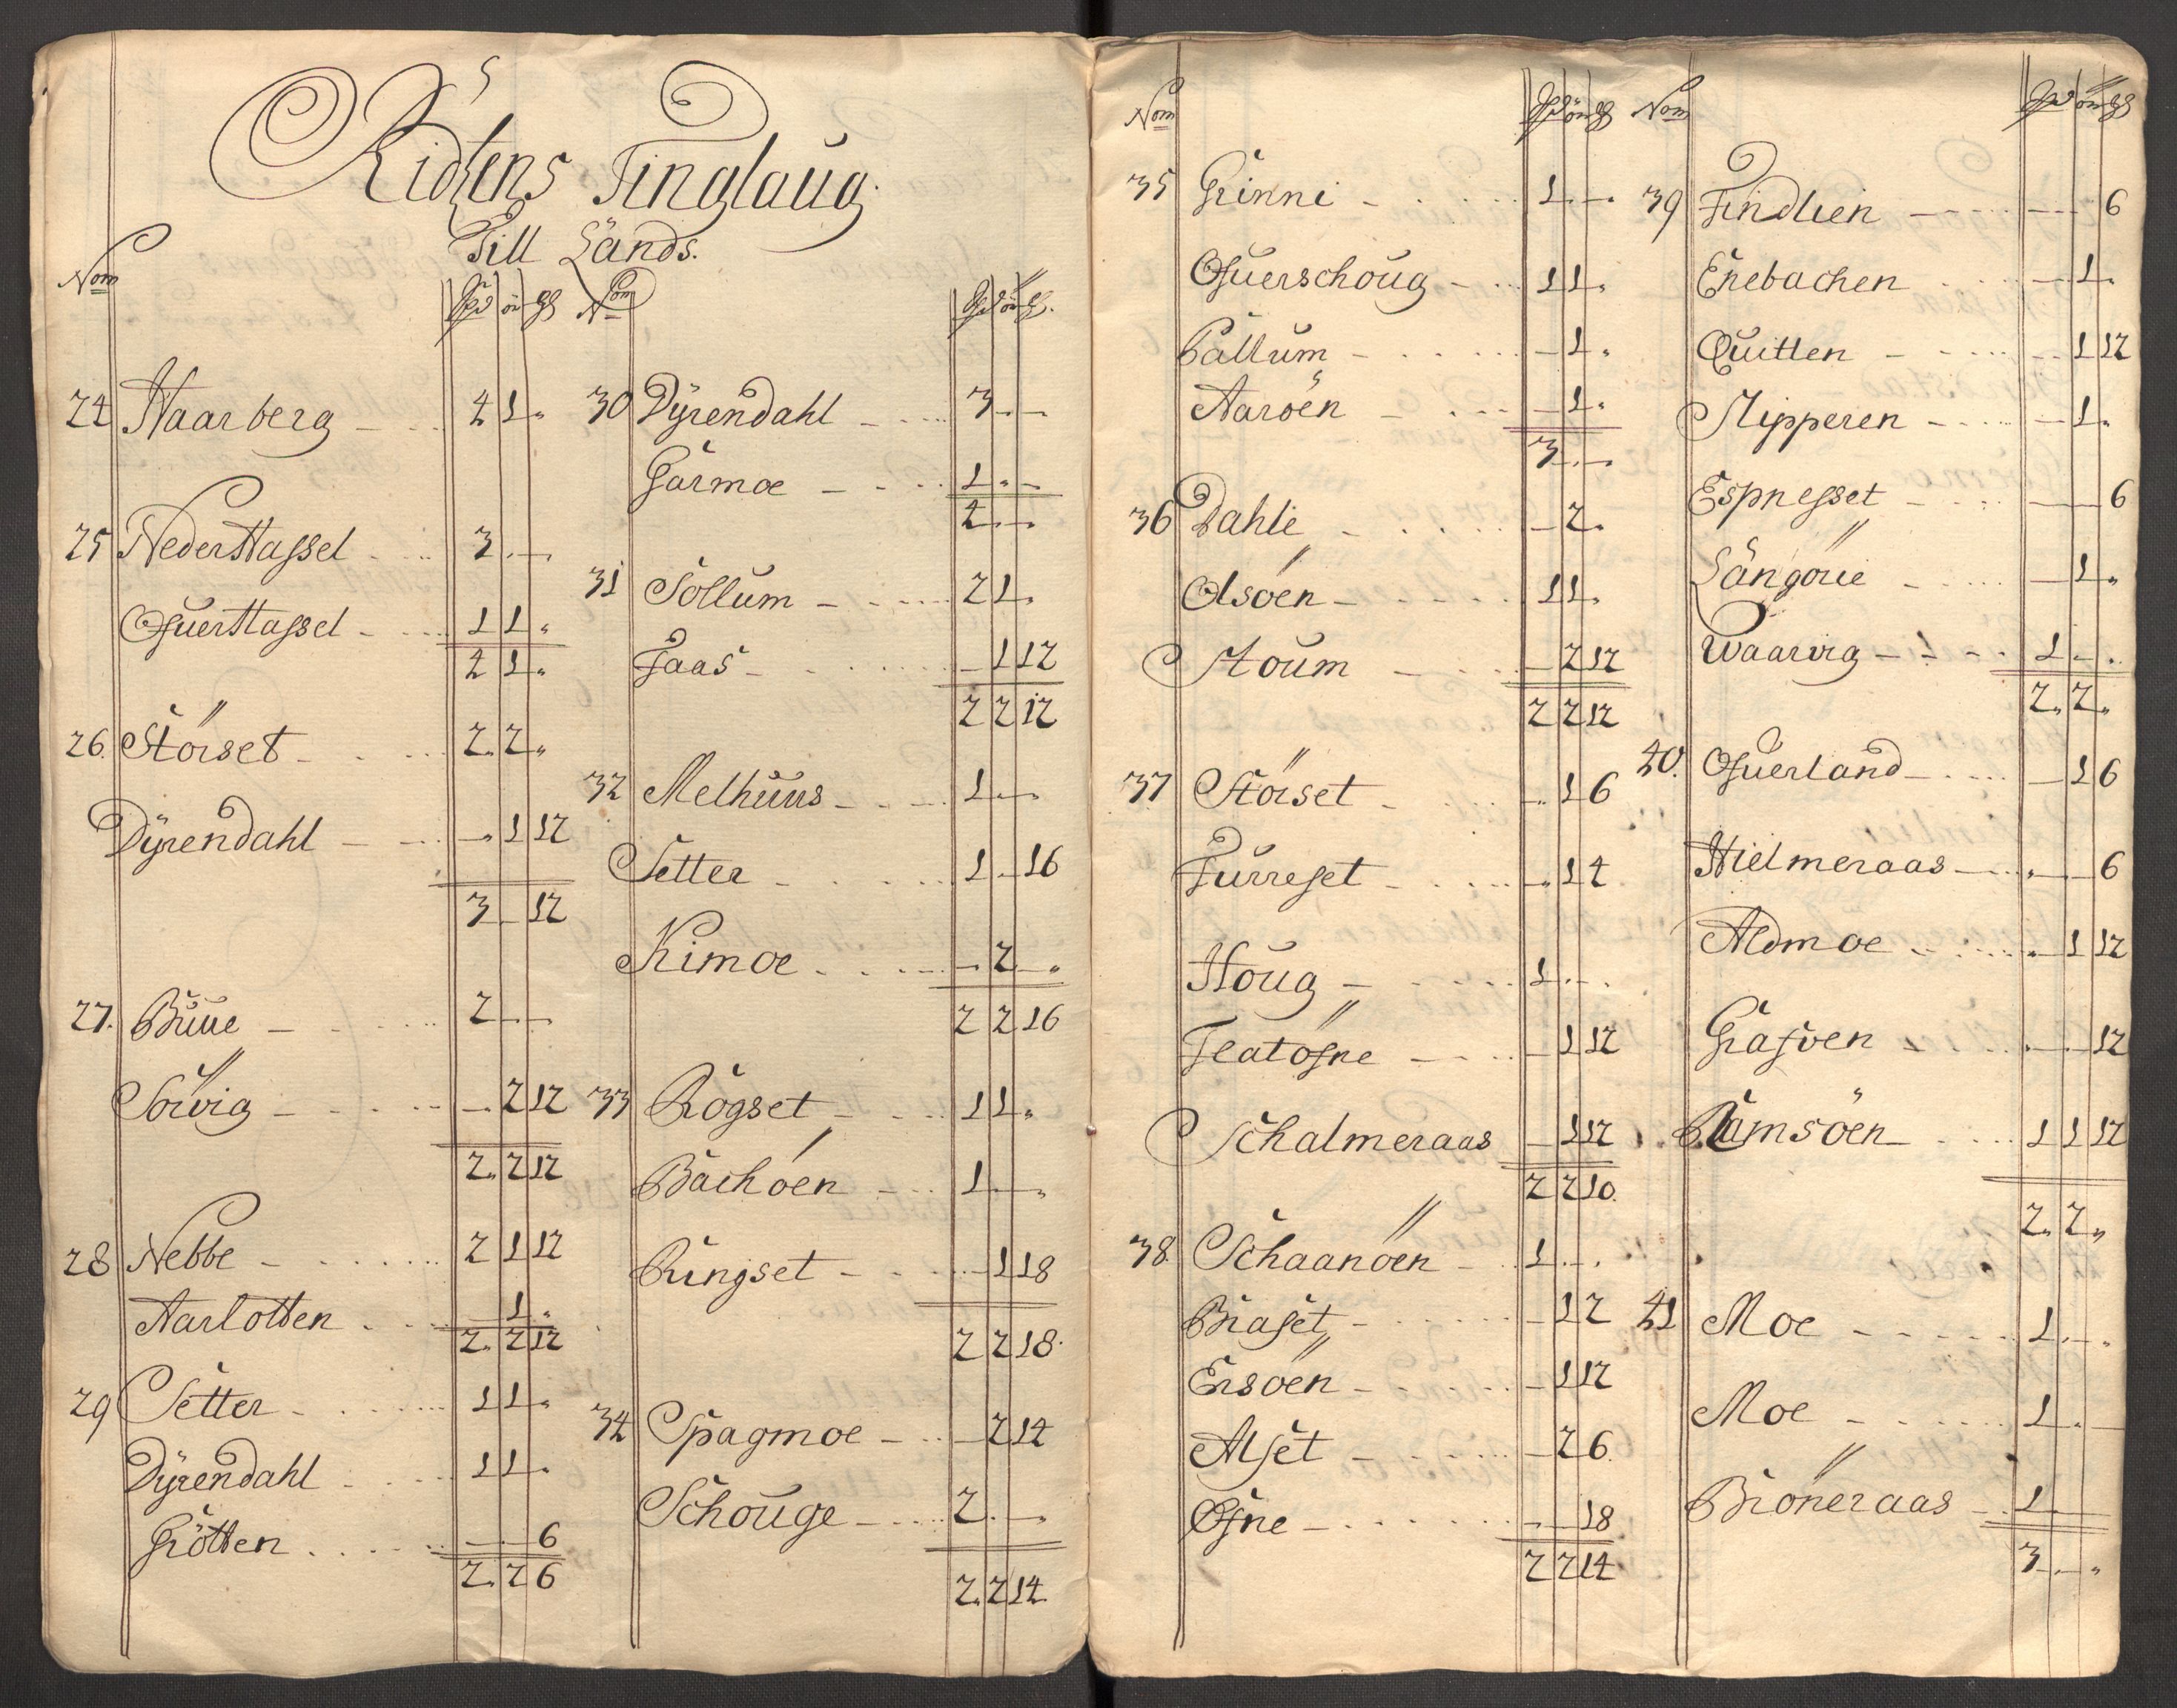 Tinglaug.
Till Lands.
Nom
Spd ör
24 Haarberg 4 1 "
25 Neder Hassel 3 . —
Ofuer Hassel 1 1 "
4 1 "
26. Störset 2. 2 "
Dÿrendahl — 1 12
3 — 12
27. Buue 2 — —
Sörvig — 2 12
2. 2 12
28 Nebbe 2 1 12
Aarlotten 1 "
2. 2 12
29 Setter 1 1 "
Dÿrendahl 1 1 "
Grötten — 6
2. 2 6
Nom Spd ör
30 Dÿrendahl 3 — —
Garmoe 1 " —
4 — —
31 Sollum 2 1 "
Faas — 1 12
2 2 12
32 Melhuus 1 — —
Setter 1 — 16
Kimoe — 2 — "
2 2 16
33 Rogset 1 1 "
Bachöen 1 — "
Ringset — 1 18
2 2 18.
34 Spagmoe — 2 14
Schouge 2 . —
2. 2 14.
Nom Spd ör
35 Grinni 1 — —
Ofuerschoug 1 1 "
Pallum — 1 "
Aaroen — 1 "
3 . —
36 Dahle — 2 "
Olsöen 1 1 "
Stoum — 2 12
2 2 12
37 Störset — 1 6
Furreset — 1 4
Houg 1 . .
Teatöfne — 1 12
Schalmeraas — 1 12
2 2 10.
38. Schaanöen 1 . .
Braset — 1 2
Ersöen — 1 12
Alset — 2 6.
Ofne — 18
2 2 14.
Nom Spd ör
39 Findlien — — 6
Enebachen — 1 "
Quitten — 1 12
Klipperen — 1 "
Espnesset — — 6
Langörie — 1 "
Waarvig 1 — "
2. 2 "
40. Ofuerland — 1 6
Hielmeraas — — 6
Aldmoe — 1 12
Grafven — — 12
Ramsöen 1 1 12
2. 2 "
41 Moe 1 — "
Moe 1 . —
Bröneraas 1
3 — "